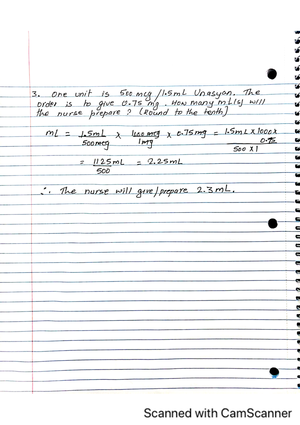 3. One unit is 500 mcg /1.5mL Unasyon. The
order is to give 0.75 mg. How many mL(s) will
the nurse prepare? (Round to the tenth)
mL = 1.5mL/500mcg x 1000mcg/1mg x 0.75mg = 1.5mL x 1000 x 0.75/500 x 1
= 1125mL/500 = 2.25mL
∴ The nurse will give/prepare 2.3mL.
Scanned with CamScanner